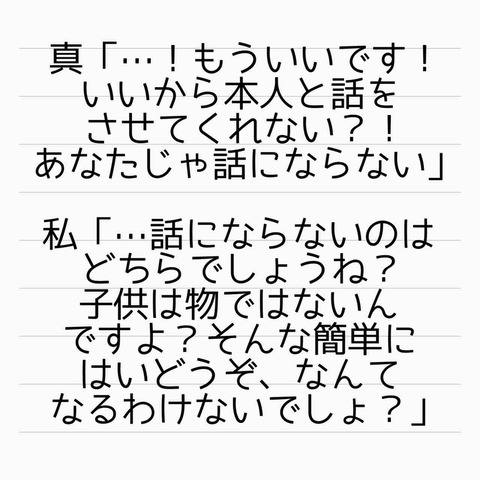 真「…！もういいです！
いいから本人と話を
させてくれない？！
あなたじゃ話にならない」
私「…話にならないのは
どちらでしょうね？
子供は物ではないん
ですよ？そんな簡単に
はいどうぞ、なんて
なるわけないでしょ？」